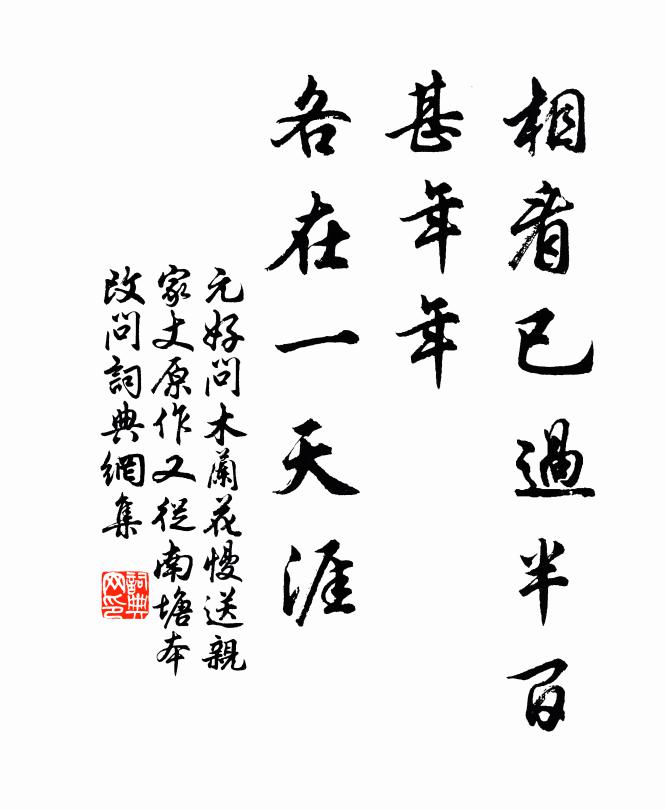 相看已過半百
甚年年
各在一天涯
元好問木蘭花慢送親
家丈原作又從南塘本
改問詞典網集
詞典網印